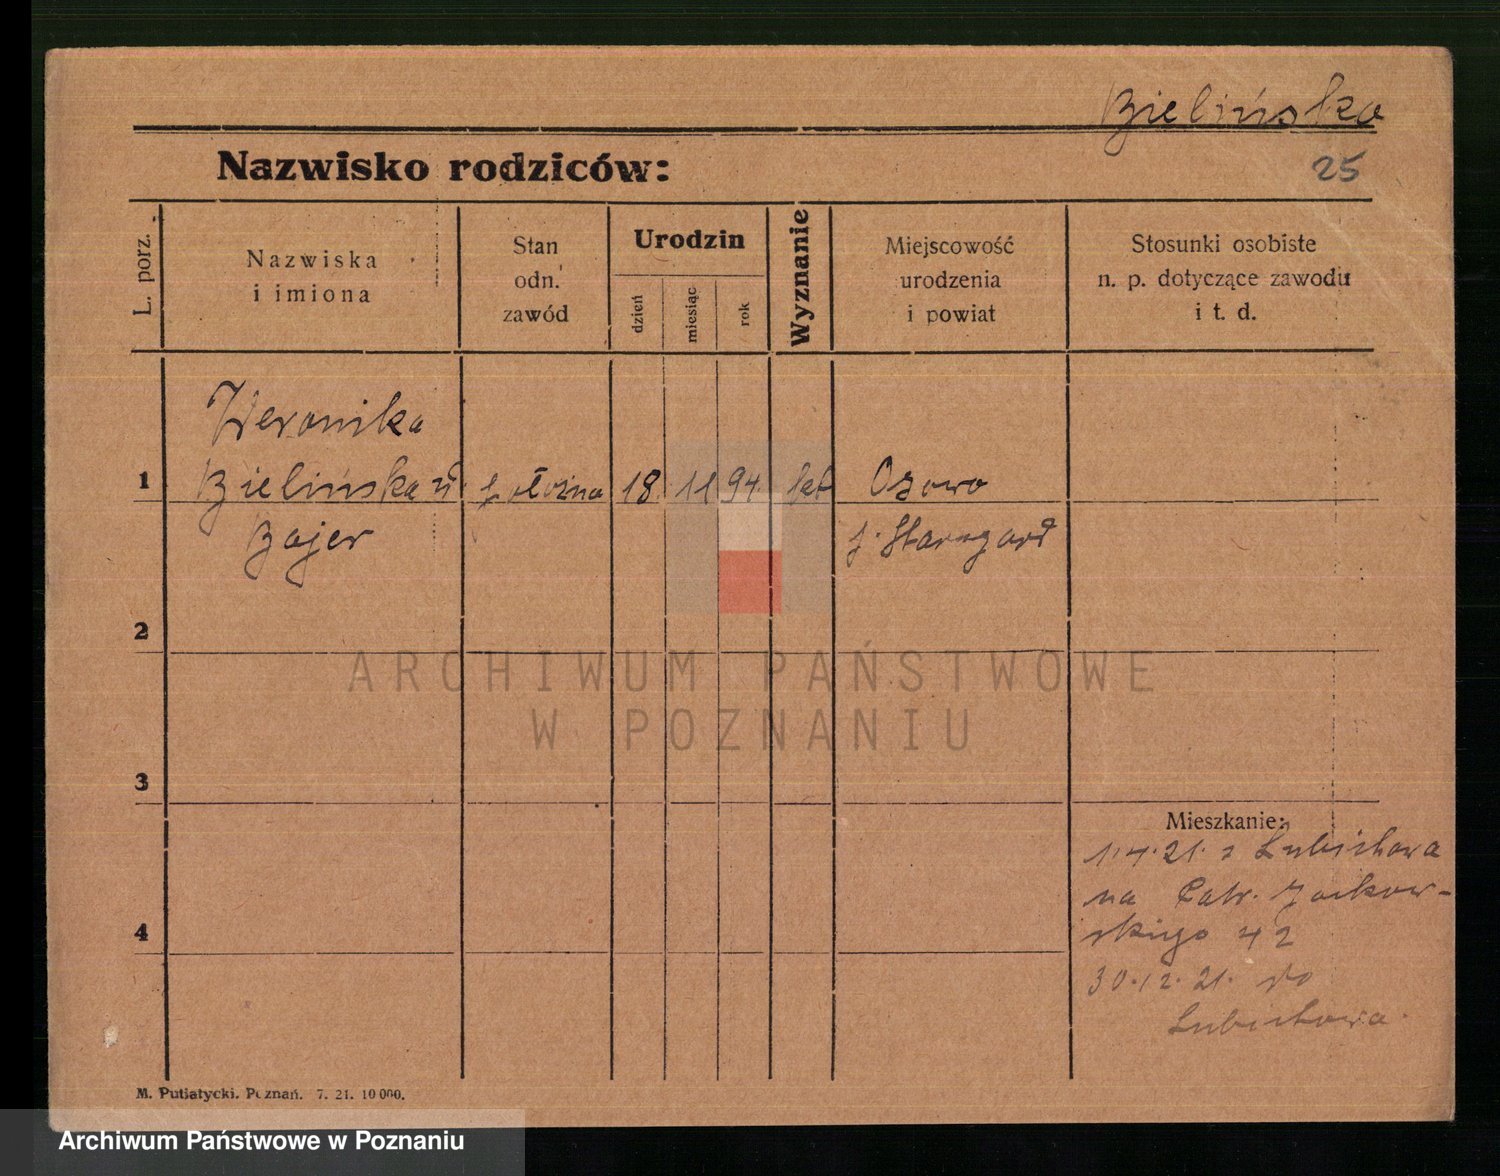 Bielińska
Nazwisko rodziców:
25
L. porz.
Nazwiska
i imiona
Stan
odn.
zawód
Urodzin
dzień
miesiąc
rok
Wyznanie
Miejscowość
urodzenia
i powiat
Stosunki osobiste
n. p. dotyczące zawodu
i t. d.
Weronika
1 Bielińska położna 18 11 94. kat Osowo
Bajer
p. Starogard
2
ARCHIWUM PAŃSTWOWE
W POZNANIU
3
Mieszkanie:
1.4.21. z Lubichowa
na Patr. Jackow-
skiego 42
4
30.12.21. do
Lubichowa.
M. Putiatycki. Poznań. 7. 21. 10 000.
Archiwum Państwowe w Poznaniu